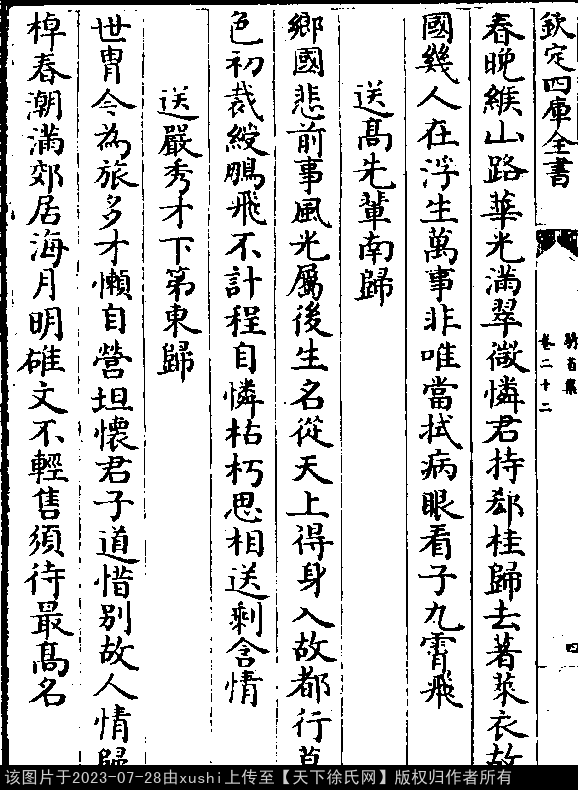 欽定四庫全書
騎省集
卷二十二
四
春晚緱山路華光滿翠微憐君持郄桂歸去著萊衣故
國幾人在浮生萬事非唯當拭病眼看子九霄飛
送髙先輩南歸
鄉國悲前事風光屬後生名從天上得身入故都行草
色初裁綬鵬飛不計程自憐枯朽思相送剩含情
送嚴秀才下第東歸
世胄今為旅多才懶自營坦懷君子道惜別故人情歸
棹春潮滿郊居海月明碓文不輕售須待最髙名
该图片于2023-07-28由xushi上传至【天下徐氏网】版权归作者所有